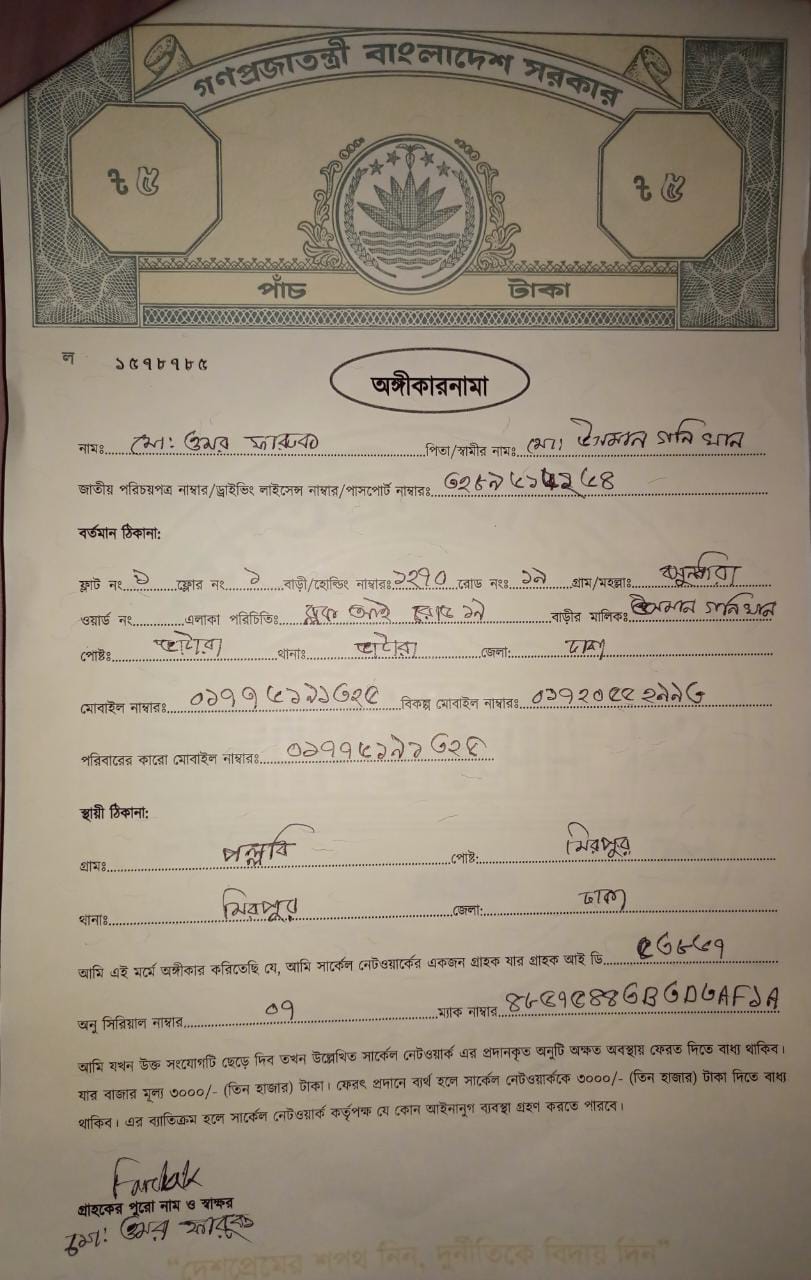 গণপ্রজাতন্ত্রী বাংলাদেশ সরকার
৳ ৫ ৳ ৫
পাঁচ টাকা
ল ১৫৭৮৭৮৫
অঙ্গীকারনামা
নামঃ মো: ওমর ফারুক পিতা/স্বামীর নামঃ মো: উসমান গনি খান
জাতীয় পরিচয়পত্র নাম্বার/ড্রাইভিং লাইসেন্স নাম্বার/পাসপোর্ট নাম্বারঃ
বর্তমান ঠিকানা:
ফ্লাট নং ফ্লোর নং ১ বাড়ী/হোল্ডিং নাম্বারঃ ১২৭০ রোড নংঃ ১৯ গ্রাম/মহল্লাঃ বসুন্ধরা
ওয়ার্ড নং এলাকা পরিচিতিঃ ব্লক আই রোড ১৯ বাড়ীর মালিকঃ উসমান গনি খান
পোষ্টঃ ভাটারা থানাঃ ভাটারা জেলা: ঢাকা
মোবাইল নাম্বারঃ বিকল্প মোবাইল নাম্বারঃ
পরিবারের কারো মোবাইল নাম্বারঃ
স্থায়ী ঠিকানা:
গ্রামঃ পল্লবি পোষ্ট: মিরপুর
থানাঃ মিরপুর জেলা: ঢাকা
আমি এই মর্মে অঙ্গীকার করিতেছি যে, আমি সার্কেল নেটওয়ার্কের একজন গ্রাহক যার গ্রাহক আই ডি
অনু সিরিয়াল নাম্বার ০৭ ম্যাক নাম্বার
আমি যখন উক্ত সংযোগটি ছেড়ে দিব তখন উল্লেখিত সার্কেল নেটওয়ার্ক এর প্রদানকৃত অনুটি অক্ষত অবস্থায় ফেরত দিতে বাধ্য থাকিব।
যার বাজার মূল্য ৩০০০/- (তিন হাজার) টাকা। ফেরৎ প্রদানে ব্যর্থ হলে সার্কেল নেটওয়ার্ককে ৩০০০/- (তিন হাজার) টাকা দিতে বাধ্য
থাকিব। এর ব্যতিক্রম হলে সার্কেল নেটওয়ার্ক কর্তৃপক্ষ যে কোন আইনানুগ ব্যবস্থা গ্রহণ করতে পারবে।
গ্রাহকের পুরো নাম ও স্বাক্ষর
মো: ওমর ফারুক
"দেশপ্রেমের শপথ নিন, দুর্নীতিকে বিদায় দিন"